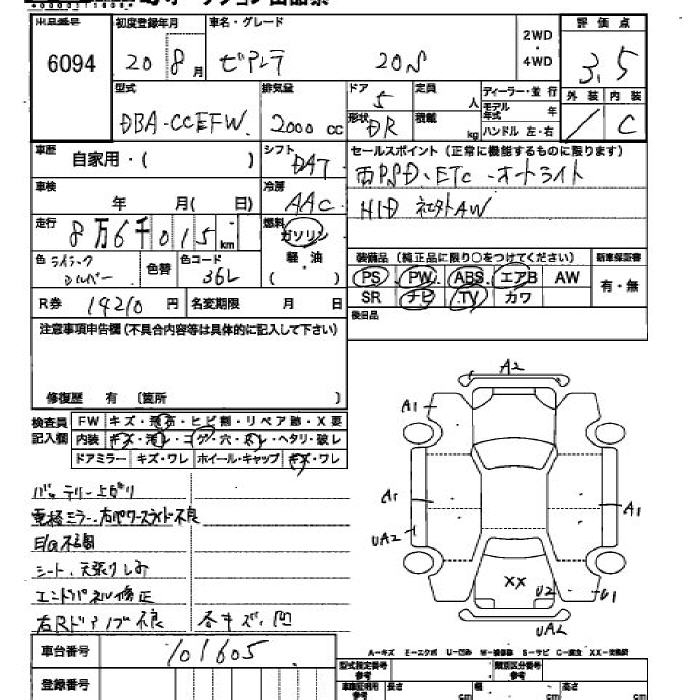 出品番号 初度登録年月 車名・グレード 2WD・4WD 評価点
6094 20 8月 ビアンテ 20S 3.5
型式 排気量 ドア 定員 ディーラー・並行 外装 内装
DBA-CCEFW 2000 cc 5 人 モデル年式 年
形状 DR 積載 kg ハンドル 左・右 C
車歴 自家用・( ) シフト DAT セールスポイント(正常に機能するものに限ります)
両PSD、ETC・オートライト
車検 年 月( 日) 冷房 AAC HID 社外AW
走行 8万6千015km 燃料 ガソリン
色 色替 色コード 36L 軽・油 ( ) 装備品(純正品に限り○をつけてください) 新車保証書
PS PW ABS エアB AW 有・無
R券 14210円 名変期限 月 日 SR ナビ TV カワ
注意事項申告欄(不具合内容等は具体的に記入して下さい) 後日品
修復歴 有 〔箇所 〕
A2
検査員記入欄 FW キズ・飛石・ヒビ割・リペア跡・X要 A1
内装 キズ・汚レ・コゲ・穴・スレ・ヘタリ・破レ
ドアミラー キズ・ワレ ホイール・キャップ キズ・ワレ
バッテリー上がり A1 A1
電格ミラー、右パワースライド不良 UA2
シート、天張りしみ XX
エンドパネル修正 U2 U1
右Rドアノブ不良 各キズ、凹 UA2
車台番号 101605 A-キズ E-エクボ U-凹み W-補修跡 S-サビ C-腐食 XX-交換済
登録番号 型式指定番号 類別区分番号
長さ cm 幅 cm 高さ cm